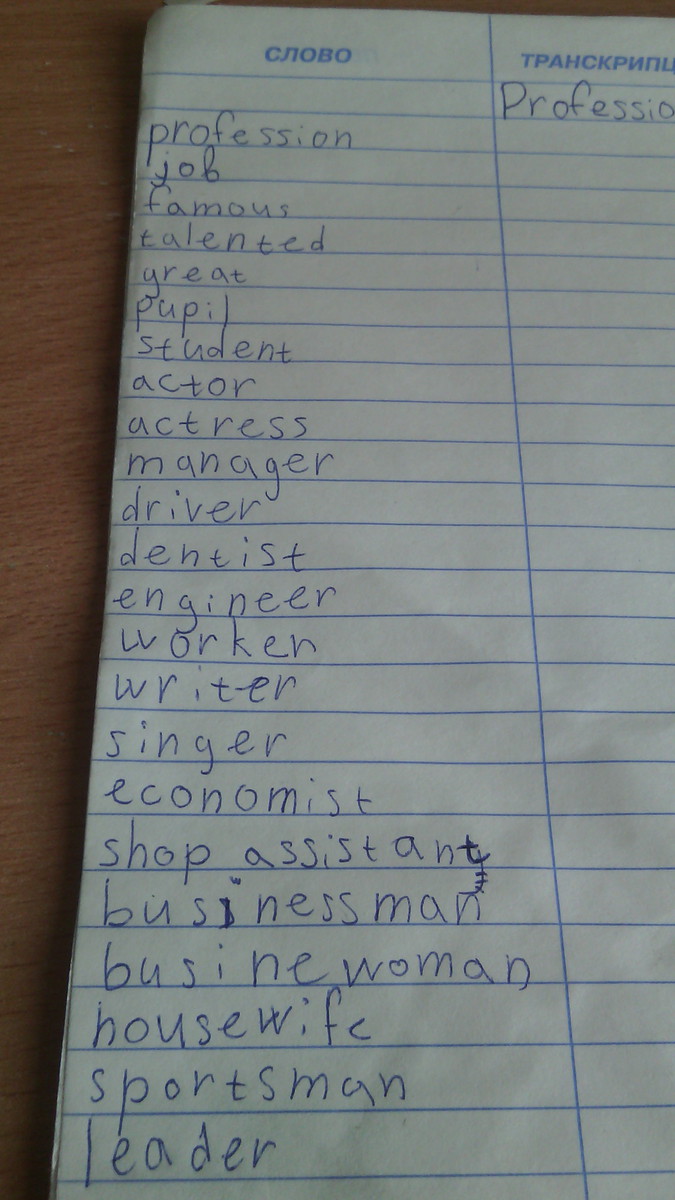 СЛОВО ТРАНСКРИПЦ
Professio
profession
job
famous
talented
great
pupil
student
actor
actress
manager
driver
dentist
engineer
worker
writer
singer
economist
shop assistant
businessman
businewoman
housewife
sportsman
leader